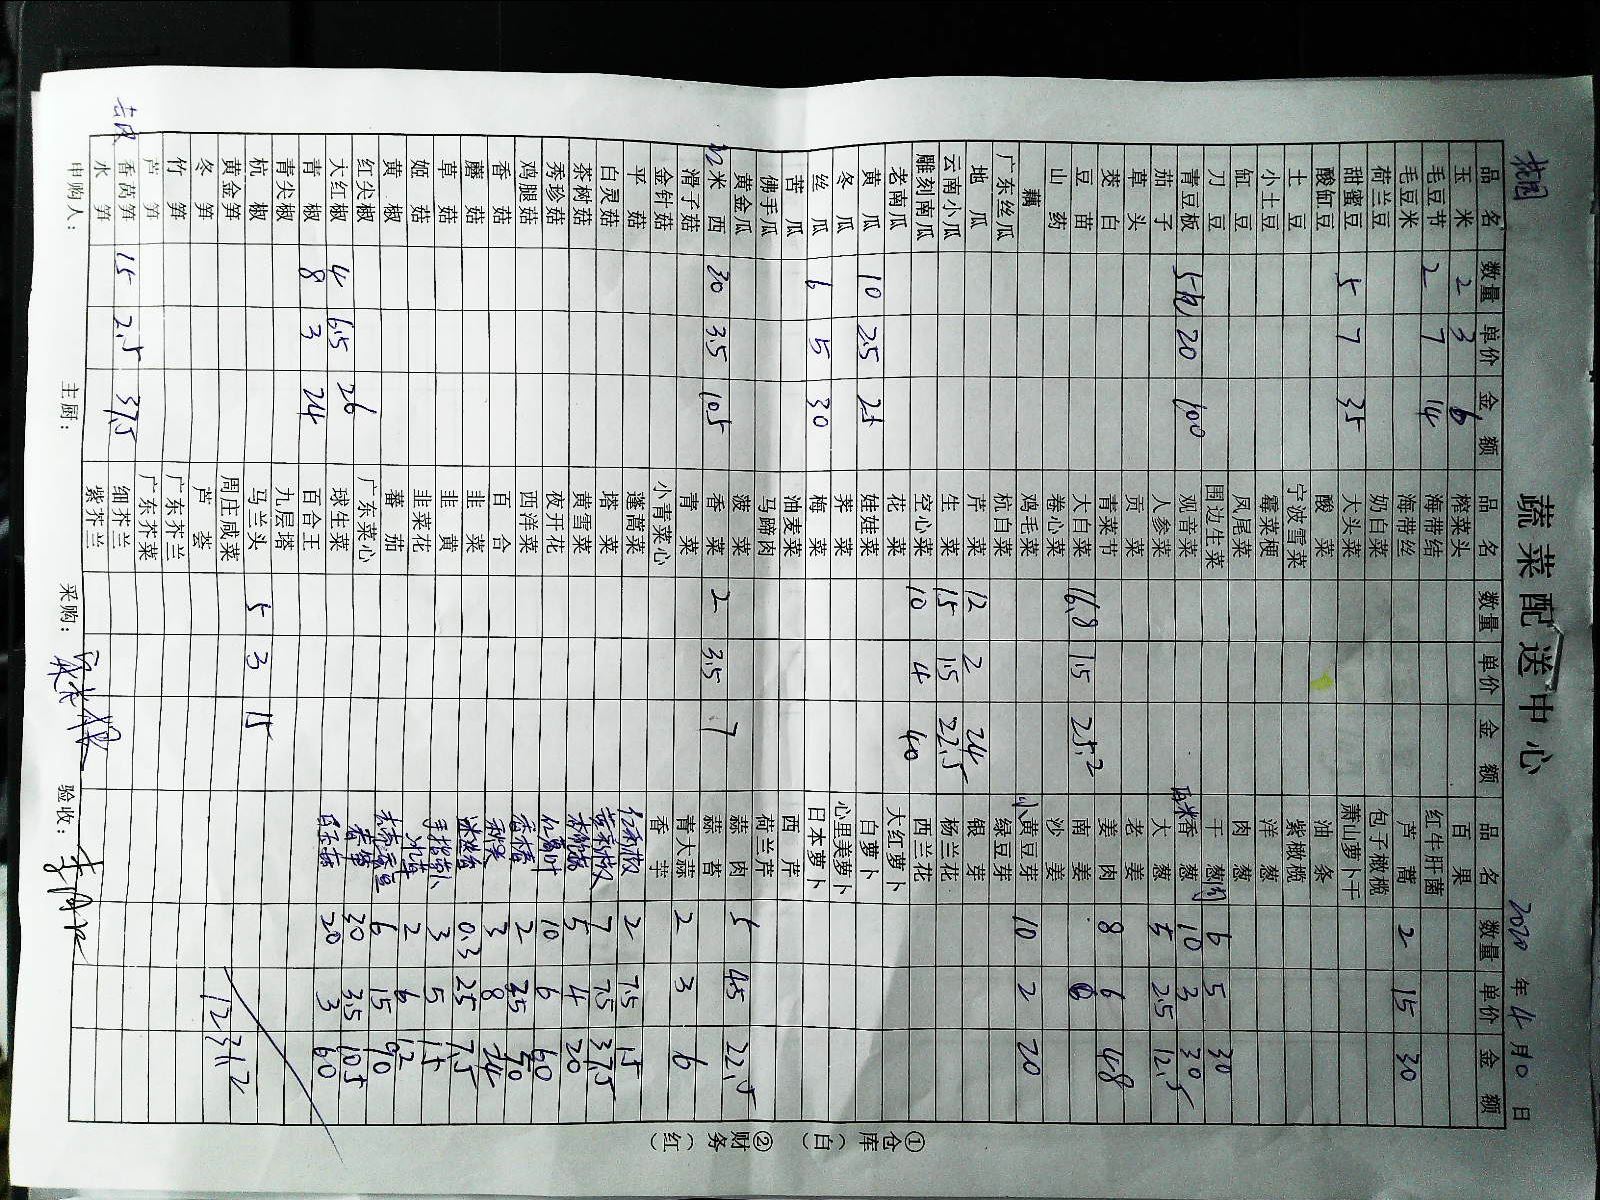 蔬菜配送中心
桃园
2020年4月10日
品名 数量 单价 金额 品名 数量 单价 金额 品名 数量 单价 金额
玉米 2 3 6 榨菜头 百果
毛豆节 2 7 14 海带结 红牛肝菌
毛豆米 海带丝 芦蒿 2 15 30
荷兰豆 奶白菜 包子橄榄
甜蜜豆 5 7 35 大头菜 萧山萝卜干
酸缸豆 酸菜 油条
土豆 宁波雪菜 紫橄榄
小土豆 霉菜梗 洋葱
缸豆 凤尾菜 肉葱
刀豆 围边生菜 干葱 6 5 30
青豆板 5 20 100 观音菜 香葱 10 3 30
茄子 人参菜 大葱 5 2.5 12.5
草头 贡菜 老姜
茭白 青菜节 姜肉 8 6 48
豆苗 大白菜 16.8 1.5 25.2 南姜
山药 卷心菜 沙姜
藕 鸡毛菜 小黄豆芽 10 2 20
广东丝瓜 杭白菜 绿豆芽
地瓜 芹菜 12 2 24 银芽
云南小瓜 生菜 15 1.5 22.5 杨兰花
雕刻南瓜 空心菜 10 4 40 西兰花
老南瓜 花菜 大红萝卜
黄瓜 10 2.5 25 娃娃菜 白萝卜
冬瓜 荠菜 心里美萝卜
丝瓜 6 5 30 梅菜 日本萝卜
苦瓜 油麦菜 西芹
佛手瓜 马蹄肉 荷兰芹
黄金瓜 菠菜 蒜肉 5 4.5 22.5
米西 30 3.5 105 香菜 2 3.5 7 蒜苔
滑子菇 青菜 青大蒜 2 3 6
金针菇 小青菜心 香芋
平菇 蓬蒿菜 2 7.5 15
白灵菇 塔菜 7.5 37.5
茶树菇 黄雪菜 5 4 20
秀珍菇 夜开花 10 6 60
鸡腿菇 西洋菜 香椿 2 35 70
香菇 百合 3 8 24
蘑菇 韭菜 0.3 25 7.5
草菇 韭黄 手指萝卜 3 5 15
姬菇 韭菜花 2 6 12
黄椒 蕃茄 6 15 90
红尖椒 广东菜心 30 3.5 105
大红椒 4 6.5 26 球生菜 20 3 60
青椒 8 3 24 百合王
青尖椒 九层塔
杭椒 马兰头 5 3 15
黄金笋 周庄咸菜 1231.2
冬笋 芦荟
竹笋 广东芥兰
芦笋 广东芥菜
香莴笋 15 2.5 37.5 细芥兰
水笋 紫芥兰
申购人： 主厨： 采购： 验收：
①仓库（白） ②财务（红）